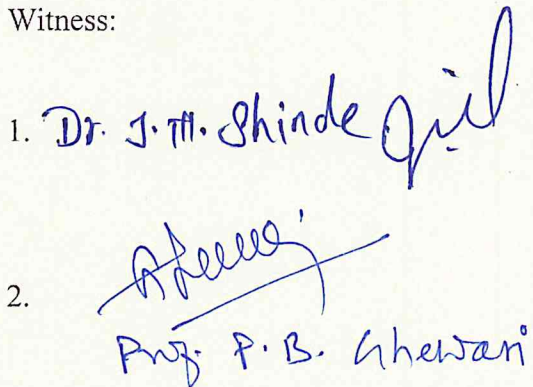 Witness:
1. Dr. J. M. Shinde
2.
Prof. P. B. Ghewari